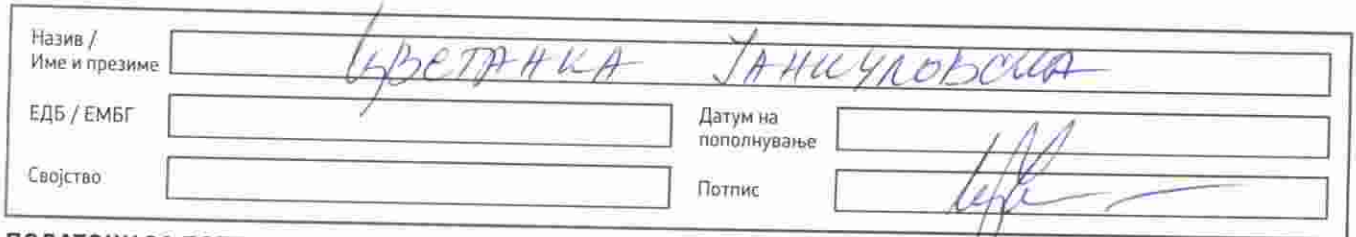 Назив /
Име и презиме ЦВЕТАНКА ЈАНКУЛОВСКА
ЕДБ / ЕМБГ Датум на
пополнување
Својство Потпис